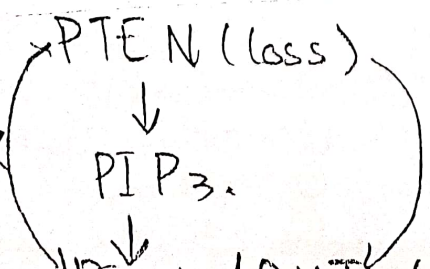 PTEN (loss)
PIP3.